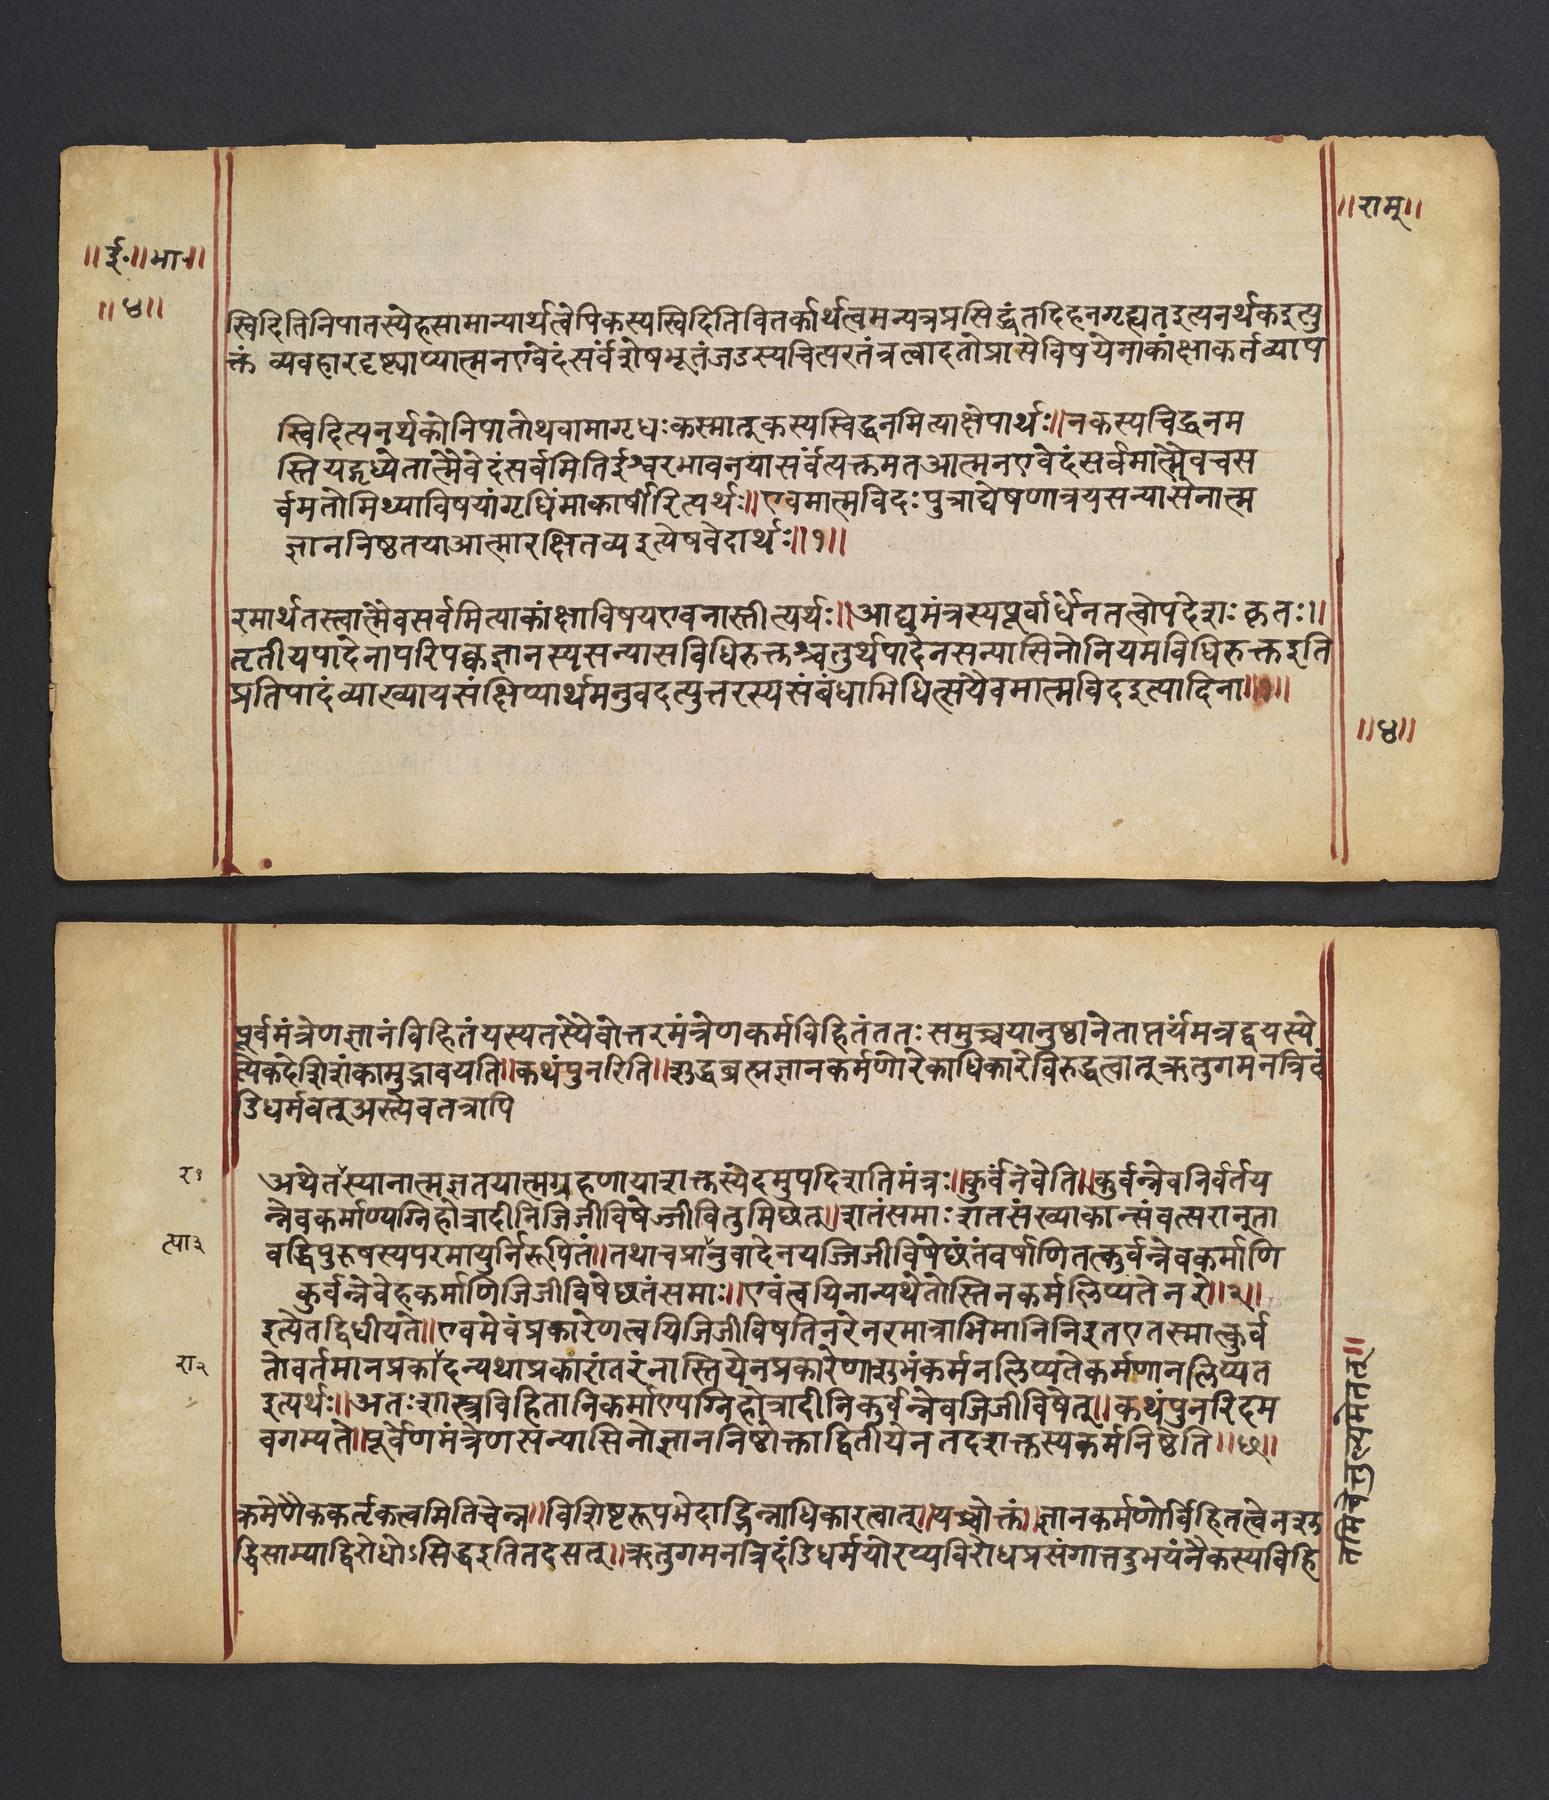 ॥ई॰॥भा॰॥
॥४॥
॥राम॥
स्विदितिनिपातस्येहसामान्यार्थत्वेपिकस्यस्विदितिवितर्कार्थत्वमन्यत्रप्रसिद्धंतदिहनगृह्यतइत्यनर्थकइत्यु
क्तं व्यवहारदृष्ट्याप्यात्मनएवेदंसर्वंशेषभूतंजडस्यचित्परतंत्रत्वादतोप्राप्तेविषयेनाकांक्षाकर्तव्याप
स्विदित्यनर्थकोनिपातोथवामागृधःकस्मात्कस्यस्विद्धनमित्याक्षेपार्थः॥नकस्यचिद्धनम
स्तियद्गृध्येतात्मैवेदंसर्वमितिईश्वरभावनयासर्वंत्यक्तमतआत्मनएवेदंसर्वमात्मैवचस
र्वमतोमिथ्याविषयांगृधिंमाकार्षीरित्यर्थः॥एवमात्मविदःपुत्राद्येषणात्रयसन्यासेनात्म
ज्ञाननिष्ठतयाआत्मारक्षितव्यइत्येषवेदार्थः॥१॥
रमार्थतस्त्वात्मैवसर्वमित्याकांक्षाविषयएवनास्तीत्यर्थः॥आद्यमंत्रस्यपूर्वार्धेनतत्वोपदेशःकृतः॥
तृतीयपादेनापरिपक्वज्ञानस्यसन्यासविधिरुक्तश्चतुर्थपादेनसन्यासिनोनियमविधिरुक्तइति
प्रतिपादंव्याख्यायसंक्षिप्यार्थमनुवदत्युत्तरस्यसंबंधाभिधित्सयैवमात्मविदइत्यादिना॥१॥
॥४॥
पूर्वमंत्रेणज्ञानंविहितंयस्यतस्यैवोत्तरमंत्रेणकर्मविहितंततःसमुच्चयानुष्ठानेतात्पर्यमत्रद्वयस्ये
त्येकदेशिशंकामुद्भावयति॥कथंपुनरिति॥शुद्धब्रह्मज्ञानकर्मणोरेकाधिकारेविरुद्धत्वात्ऋतुगमनत्रिदं
डिधर्मवत्अस्त्येवतत्रापि
र१
अथेतस्यानात्मज्ञतयात्मग्रहणायाशक्तस्येदमुपदिशतिमंत्रः॥कुर्वंनेवेति॥कुर्वन्नेवनिर्वर्तय
न्नेवकर्माण्यग्निहोत्रादीनिजिजीविषेज्जीवितुमिछेत्॥शतंसमाःशतसंख्याकान्संवत्सरान्ता
त्या३
वद्धिपुरुषस्यपरमायुर्निरूपितं॥तथाचप्रानुवादेनयज्जिजीविषेछतंवर्षाणितत्कुर्वन्नेवकर्माणि
कुर्वन्नेवेहकर्माणिजिजीविषेछतंसमाः॥एवंत्वयिनान्यथेतोस्तिनकर्मलिप्यतेनरे॥२॥
इत्येतद्विधीयते॥एवमेवंप्रकारेणत्वयिजिजीविषतिनरेनरमात्राभिमानिनिइतएतस्मात्कुर्व
रा२
तोवर्तमानप्रकादन्यथाप्रकारांतरंनास्तियेनप्रकारेणाशुभंकर्मनलिप्यतेकर्मणानलिप्यत
इत्यर्थः॥अतःशास्त्रविहितानिकर्माण्यग्निहोत्रादीनिकुर्वन्नेवजिजीविषेत्॥कथंपुनरिदम
वगम्यते॥पूर्वेणमंत्रेणसंन्यासिनोज्ञाननिष्ठोक्ताद्वितीयेनतदशक्तस्यकर्मनिष्ठेति॥छ॥
क्रमेणैककर्तृकत्वमितिचेन्न॥विशिष्टरूपभेदाद्भिन्नाधिकारत्वात्॥यच्चोक्तं॥ज्ञानकर्मणोर्विहितत्वेनशु
द्धिसाम्याद्विरोधोऽसिद्धइतितदसत्॥ऋतुगमनत्रिदंडिधर्मयोरप्यविरोधप्रसंगात्तदुभयंनैकस्यविहि